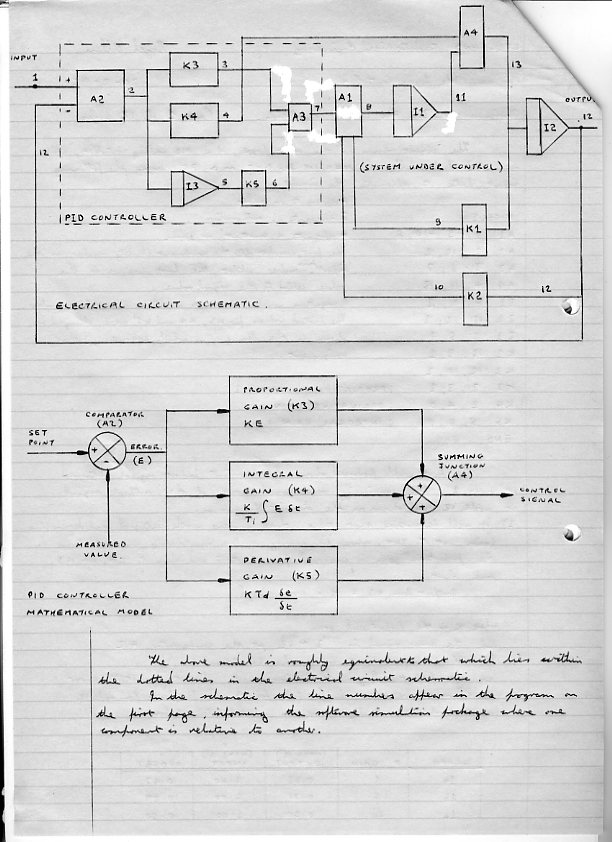 INPUT
1
+
-
A2
2
K3
3
K4
4
I3
5
K5
6
A3
7
A1
8
I1
11
A4
13
I2
OUTPU
12
12
(SYSTEM UNDER CONTROL)
PID CONTROLLER
9
K1
10
K2
12
ELECTRICAL CIRCUIT SCHEMATIC.
PROPORTIONAL
GAIN (K3)
KE
COMPARATOR
(A2)
SET
POINT
+
-
ERROR
(E)
INTEGRAL
GAIN (K4)
K/Ti ∫ E δt
SUMMING
JUNCTION
(A4)
+
+
+
CONTROL
SIGNAL
MEASURED
VALUE.
DERIVATIVE
GAIN (K5)
KTd δe/δt
PID CONTROLLER
MATHEMATICAL MODEL
The above model is roughly equivalent to that which lies within
the dotted lines in the electrical circuit schematic.
In the schematic the line numbers appear in the program on
the first page, informing the software simulation package where one
component is relative to another.